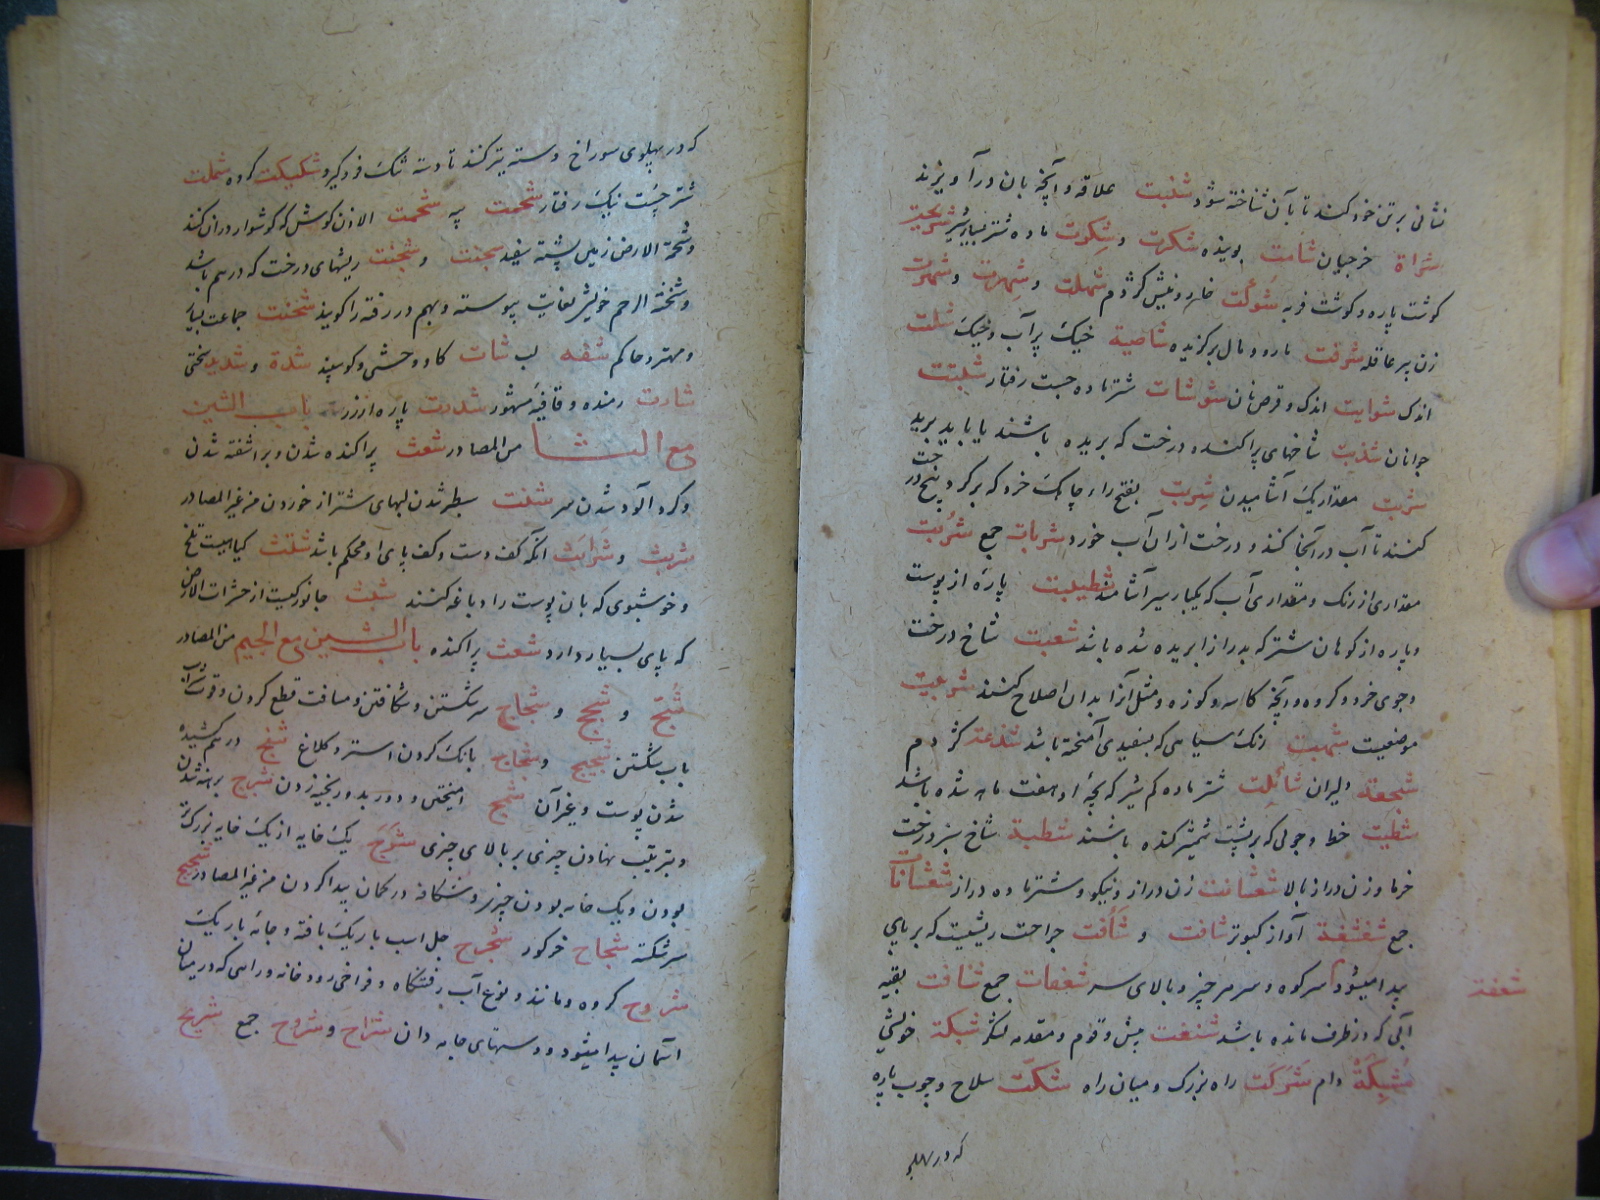 نشانی برتن خود کنند تا بآن شناخته شود شذبت علاقه و آنچه بان در آویزند
شراة خرجیان شامت بوینده شکرت و شکرت ماده شتر بسیار شیر
گوشت پاره و گوشت فربه شوکت خار و نیش کژدم شهلت و شهرت و شهرت
زن پیر عاقله شرفت مار و مال برگزیده شاصیة خیک پر آب و خیک
اندک شوایت اندک و قرص نان شوشات شتر ماده جست رفتار
جوانان شذبت شاخهای پراکنده درخت که بریده باشند یا باید برید
شربت مقداریک آشامیدن شربت بفتح را چاهک خرد که بر گرد بیخ درخت
کنند تا آب در آنجا کند و درخت ازان آب خورد شربات جمع شربت
مقداری از رنگ و مقداری آب که یکبار سیر آشامند شطیبت پاره از پوست
و پاره از کوهان شتر که بدرازا بریده شده باشد شعبت شاخ درخت
و جوی خرد و گروه و آنچه کاسه و کوزه و مثل آنرا بدان اصلاح کنند شرعبت
موضعیت شهبت رنگ سیاهی که بسفیدی آمیخته باشد شدعة کژدم
شجعة دلیران شائلت شتر ماده کم شیر که بچۀ او هفت ماهه شده باشد
شطبت خط و جوی که بر پشت شمشیر کنده باشند شطبة شاخ سبز درخت
خرما و زن دراز بالا زن دراز و نیکو و شتر ماده دراز
جمع شقشقة آواز کبوتر شافت و شأفت جراحت ریشیست که بر پای
پیدا میشود سر کوه و سر هر چیز و بالای سر شعفات جمع شفافت بقیه
شعفة
آبی که در ظرف مانده باشد پیش و قوم و مقدمه لشکر شبکة خویشی
شبکة دام شرکت راه بزرگ و میان راه شکت سلاح و چوب پاره
که در پهلو
که در پهلوی سوراخ دسته تبر کنند تا دسته تنگ فرو گیرد شکیکت گروه شملت
شتر چست نیک رفتار شحمت پیه شحمت الاذن گوش که گوشوار دران کنند
و شحمة الارض زمین پشته سفید شجنت و شجنت ریشهای درخت که درهم باشد
و شجنة الرحم خویش بغایت پیوسته و بهم در رفته را گویند شحنت جماعت بسیار
و مهتر و حاکم شفه لب شات گاو وحشی و گوسپند شدة و شدید سختی
شاردت رمنده و قافیۀ مشهور شذرت پاره از زر باب الشین
مع الثا من المصادر شعث پراکنده شدن و برآشفته شدن
و گرد آلود شدن سر شنث سطبر شدن لبهای شتر از خوردن من غیر المصادر
شربث و شرابث آنکه کف دست و کف پای او محکم باشد شث گیاهیست تلخ
و خوشبوی که بان پوست را دباغه کنند شبث جانوریست از حشرات الارض
که پای بسیار دارد شعث پراکنده باب الشین مع الجیم من المصادر
شج و شجج و شجاج سر شکستن و شکافتن و مسافت قطع کردن و قوت شراب
باب شکستن شحیج و شحاج بانگ کردن استر و کلاغ شنج درهم کشیده
شدن پوست و غیر آن شمج آمیختن و دور بدور بخیه زدن شرج برهنه شدن
و بترتیب نهادن چیزی بر بالای چیزی شرج یک خایه از یک خایه بزرگ تر
بودن و یک خایه بودن چیز و شکافه در کمان پیدا کردن من غیر المصادر شجیج
سر شکسته شحاج خر گور جل اسب باریک بافته و جامه باریک
شروج گروه و مانند و نوع آب رفتنگاه و فراخی رودخانه و راهی که در میان
آسمان پیدا میشود و دستهای جامه دان شراج و شروج جمع شریج